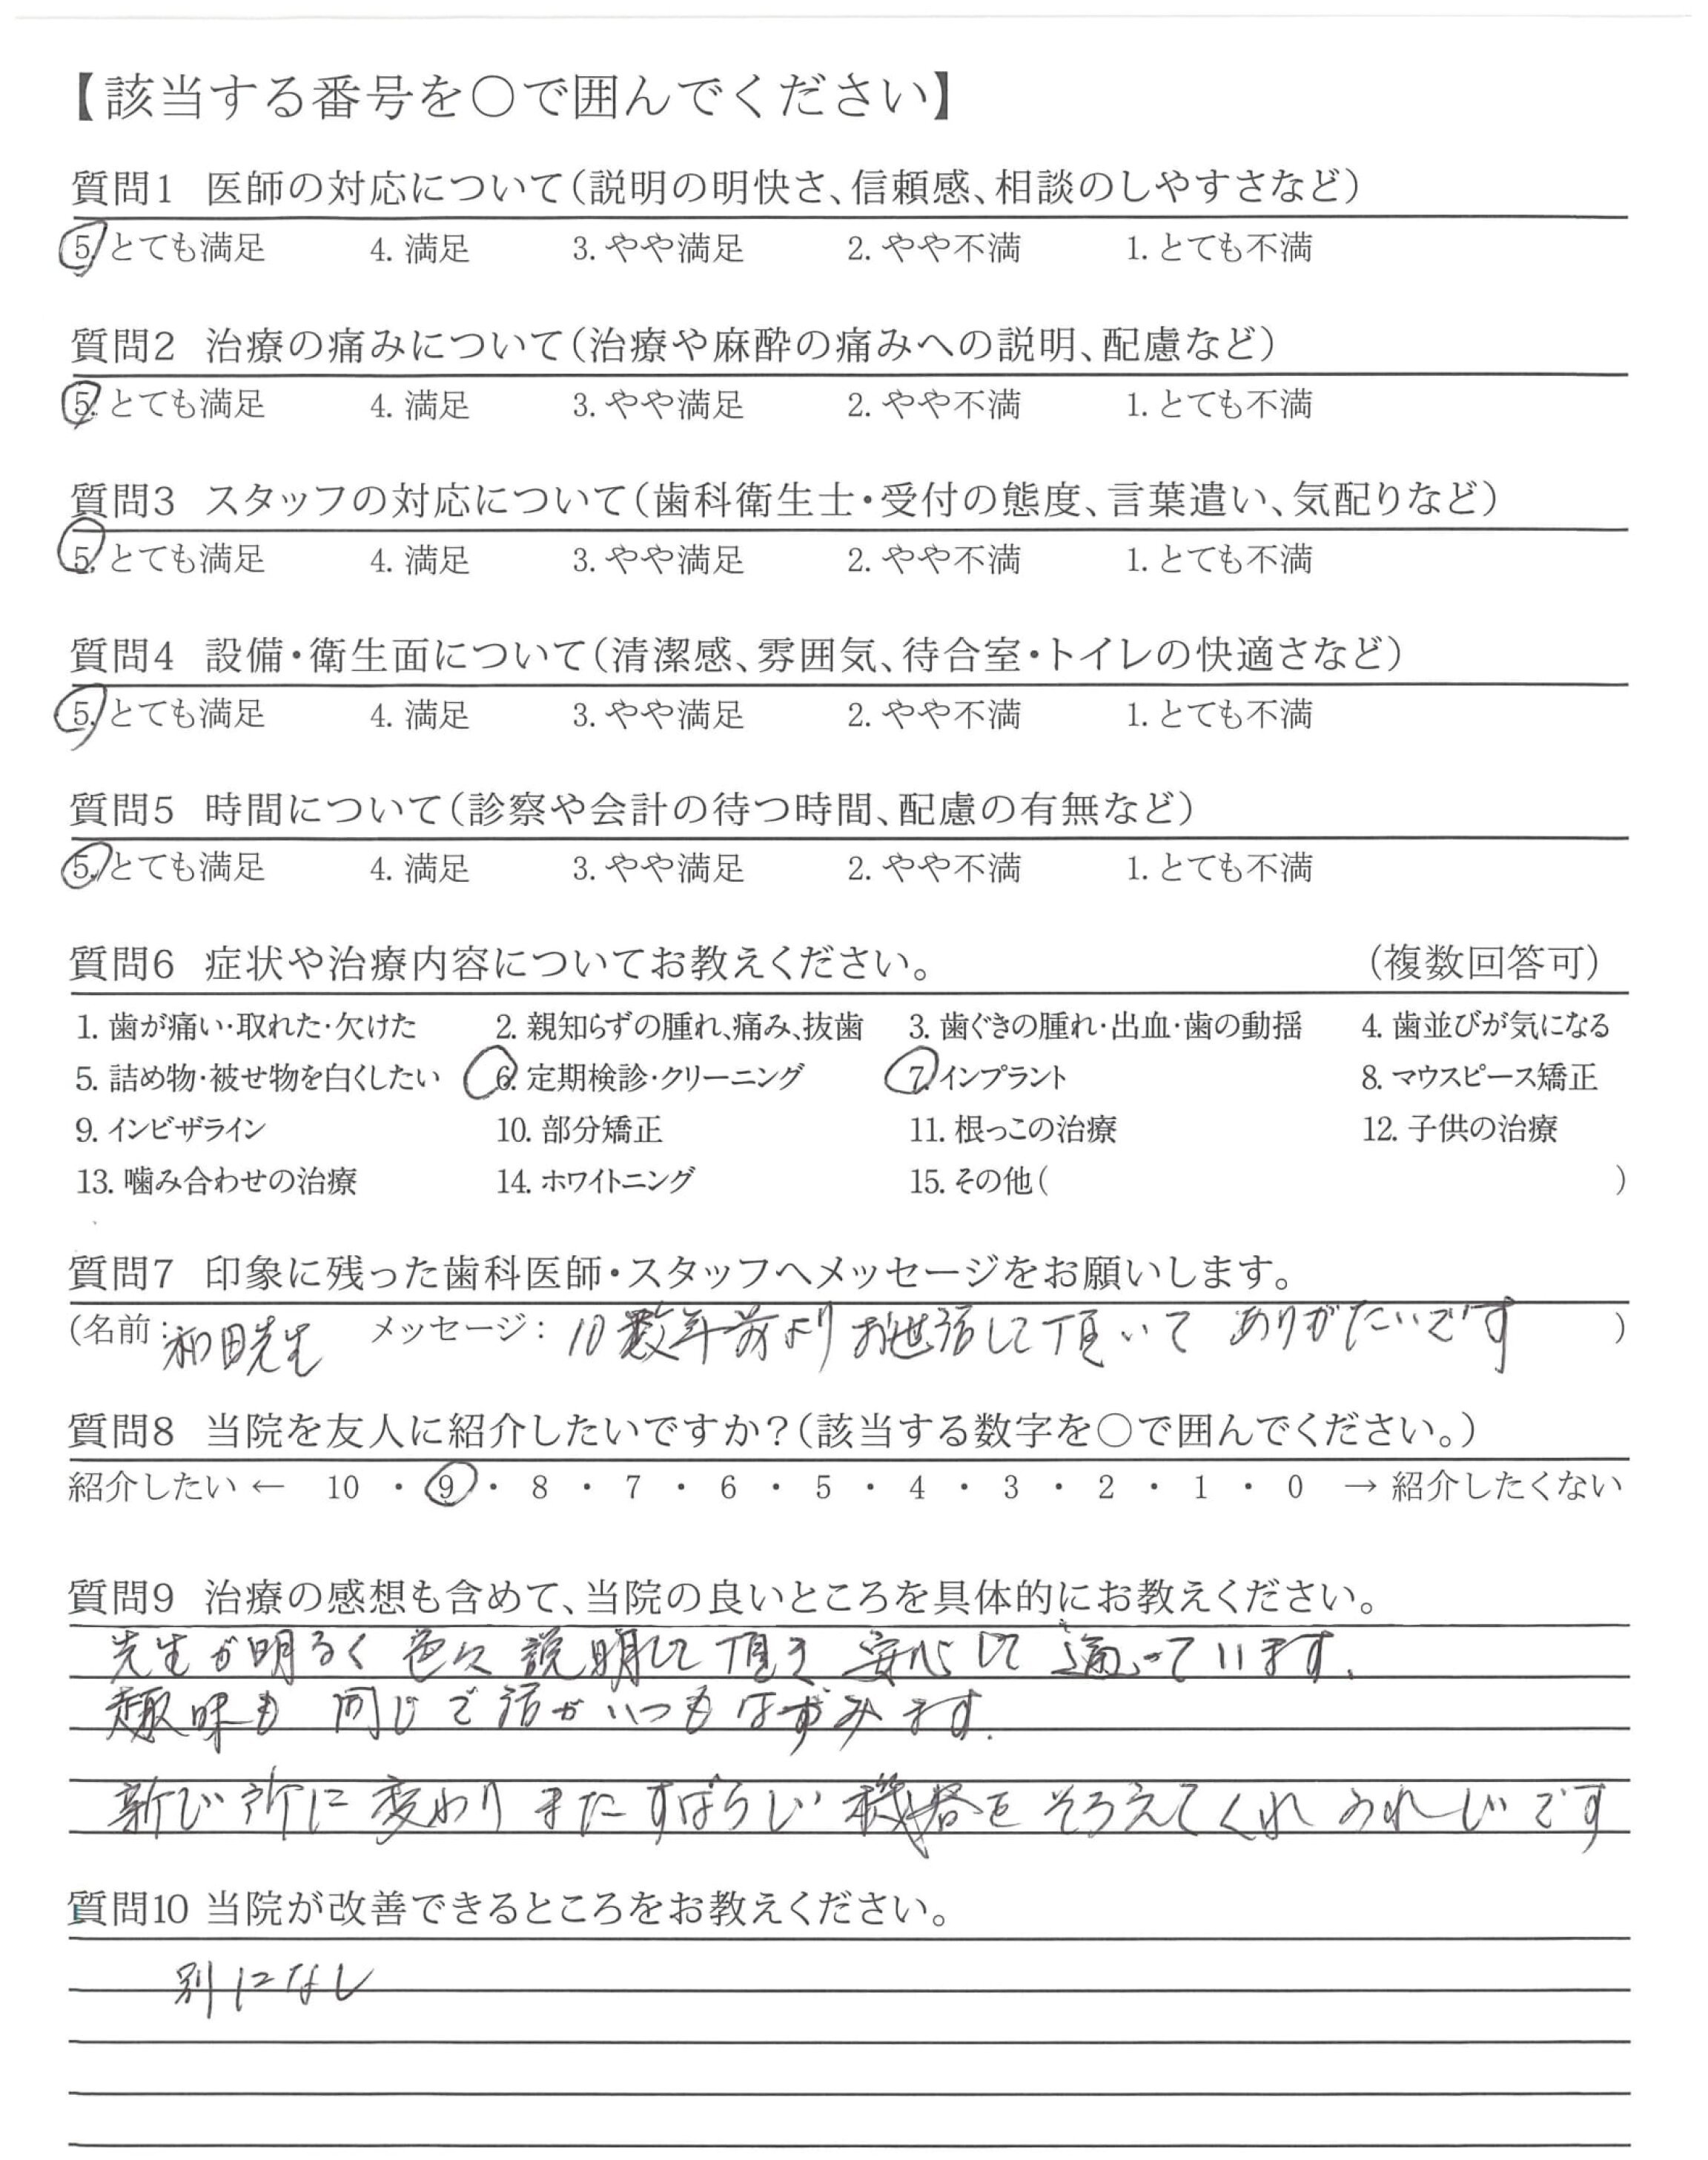 【該当する番号を○で囲んでください】
質問1 医師の対応について(説明の明快さ、信頼感、相談のしやすさなど)
5. とても満足 4. 満足 3. やや満足 2. やや不満 1. とても不満
質問2 治療の痛みについて(治療や麻酔の痛みへの説明、配慮など)
5. とても満足 4. 満足 3. やや満足 2. やや不満 1. とても不満
質問3 スタッフの対応について(歯科衛生士・受付の態度、言葉遣い、気配りなど)
5. とても満足 4. 満足 3. やや満足 2. やや不満 1. とても不満
質問4 設備・衛生面について(清潔感、雰囲気、待合室・トイレの快適さなど)
5. とても満足 4. 満足 3. やや満足 2. やや不満 1. とても不満
質問5 時間について(診察や会計の待つ時間、配慮の有無など)
5. とても満足 4. 満足 3. やや満足 2. やや不満 1. とても不満
質問6 症状や治療内容についてお教えください。 (複数回答可)
1. 歯が痛い・取れた・欠けた 2. 親知らずの腫れ、痛み、抜歯 3. 歯ぐきの腫れ・出血・歯の動揺 4. 歯並びが気になる
5. 詰め物・被せ物を白くしたい 6. 定期検診・クリーニング 7. インプラント 8. マウスピース矯正
9. インビザライン 10. 部分矯正 11. 根っこの治療 12. 子供の治療
13. 噛み合わせの治療 14. ホワイトニング 15. その他( )
質問7 印象に残った歯科医師・スタッフへメッセージをお願いします。
(名前:和田先生 メッセージ:10数年前よりお世話して頂いて ありがたいです )
質問8 当院を友人に紹介したいですか?(該当する数字を○で囲んでください。)
紹介したい ← 10 ・ 9 ・ 8 ・ 7 ・ 6 ・ 5 ・ 4 ・ 3 ・ 2 ・ 1 ・ 0 → 紹介したくない
質問9 治療の感想も含めて、当院の良いところを具体的にお教えください。
先生が明るく 色々 説明して 頂き 安心して 通っています.
趣味も 同じで 話が いつも はずみます.
新しい 所に 変わり また すばらしい 機器を そろえてくれ うれしいです
質問10 当院が改善できるところをお教えください。
別になし